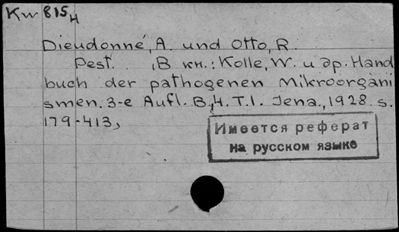 Kw 815н
Dieudonné, A. und Otto, R.
Pest. , В кн.: Kolle, W. и др. Hand
buch der pathogenen Mikroorgani
smen. 3-e Aufl. B., 4. T. 1. Jena., 1928. s.
179-413,
Имеется реферат
на русском языке